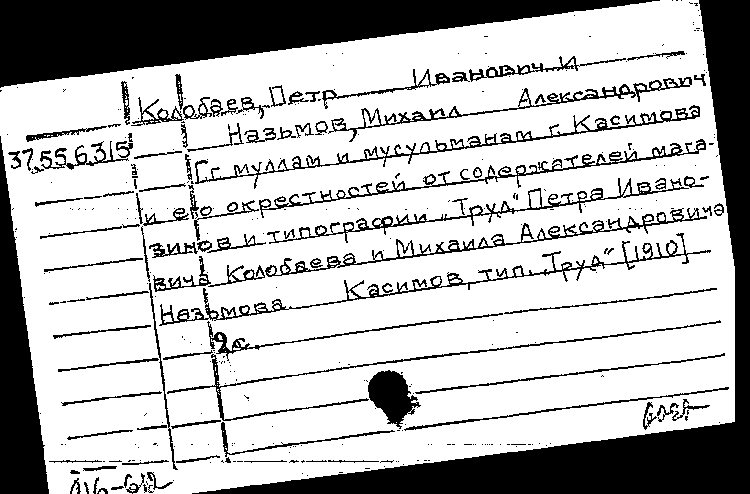 Колобаев, Петр Иванович и
Назьмов, Михаил Александрович
37.55.6.315
[гг муллам и мусульманам г. Касимова
и его окрестностей от содержателей мага-
зинов и типографии „Труд" Петра Ивано-
вича Колобаева и Михаила Александровича
Назьмова. Касимов, тип. „Труд" [1910]
2с.
416-612